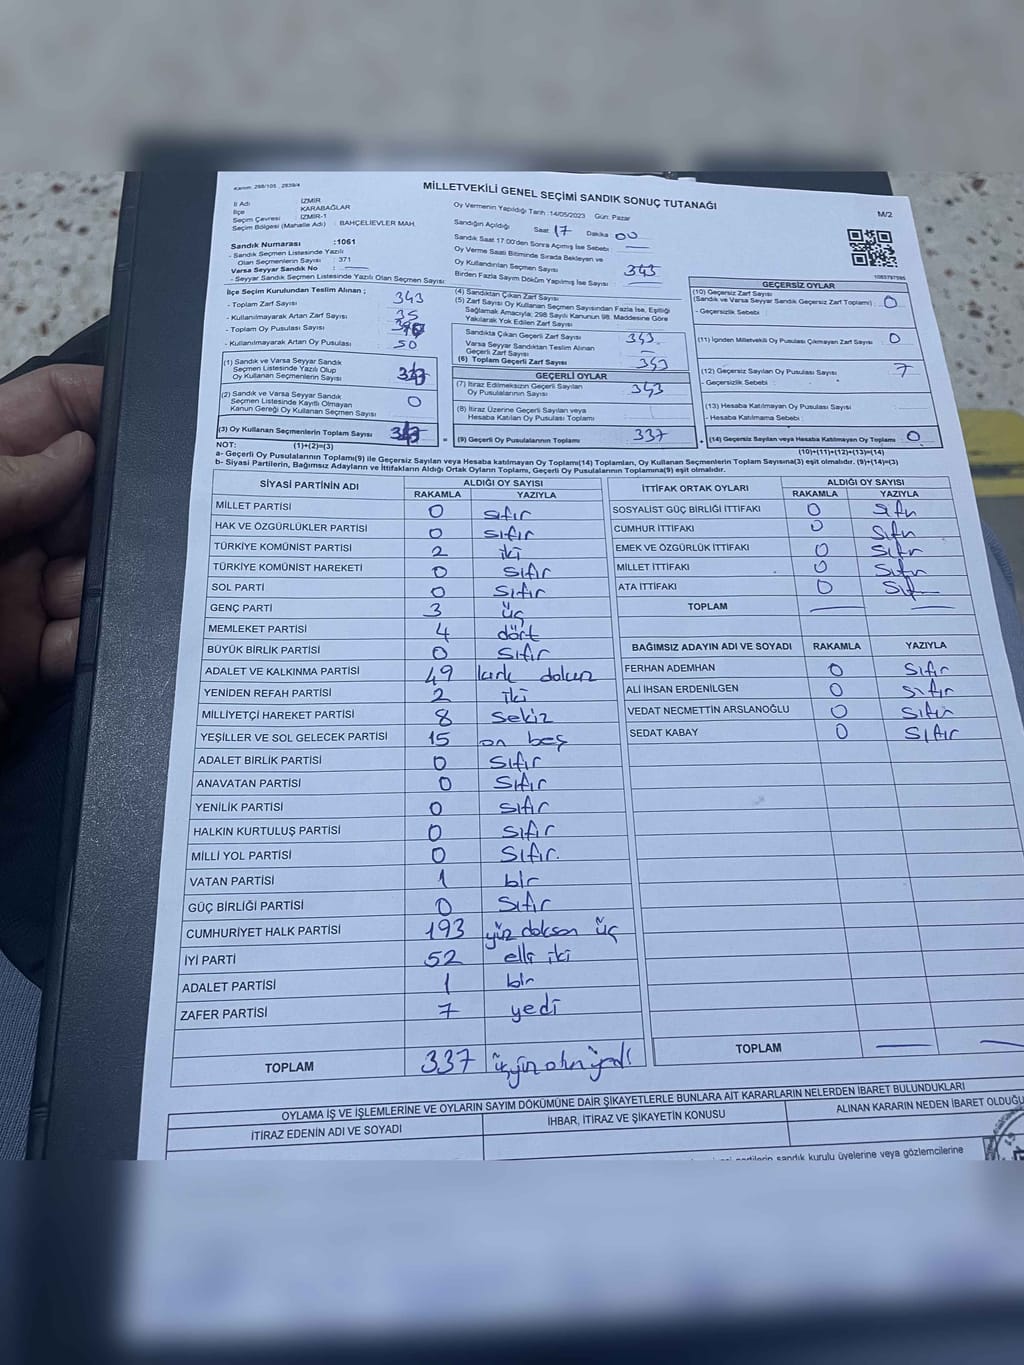 Kanun: 298/105 , 2839/4
MİLLETVEKİLİ GENEL SEÇİMİ SANDIK SONUÇ TUTANAĞI
M/2
İl Adı : İZMİR
İlçe : KARABAĞLAR
Seçim Çevresi : İZMİR-1
Seçim Bölgesi (Mahalle Adı) : BAHÇELİEVLER MAH.
Sandık Numarası :1061
- Sandık Seçmen Listesinde Yazılı
Olan Seçmenlerin Sayısı : 371
Varsa Seyyar Sandık No :
- Seyyar Sandık Seçmen Listesinde Yazılı Olan Seçmen Sayısı:
Oy Vermenin Yapıldığı Tarih :14/05/2023 Gün: Pazar
Sandığın Açıldığı Saat 17 Dakika 00
Sandık Saat 17.00'den Sonra Açılmış İse Sebebi : —
Oy Verme Saati Bitiminde Sırada Bekleyen ve
Oy Kullandırılan Seçmen Sayısı : 343
Birden Fazla Sayım Döküm Yapılmış İse Sayısı : —
İlçe Seçim Kurulundan Teslim Alınan ;
- Toplam Zarf Sayısı : 343
- Kullanılmayarak Artan Zarf Sayısı : 35
- Toplam Oy Pusulası Sayısı
- Kullanılmayarak Artan Oy Pusulası : 50
(1) Sandık ve Varsa Seyyar Sandık
Seçmen Listesinde Yazılı Olup
Oy Kullanan Seçmenlerin Sayısı
(2) Sandık ve Varsa Seyyar Sandık
Seçmen Listesinde Kayıtlı Olmayan
Kanun Gereği Oy Kullanan Seçmen Sayısı 0
(3) Oy Kullanan Seçmenlerin Toplam Sayısı
(1)+(2)=(3)
(4) Sandıktan Çıkan Zarf Sayısı
(5) Zarf Sayısı Oy Kullanan Seçmen Sayısından Fazla İse, Eşitliği
Sağlamak Amacıyla; 298 Sayılı Kanunun 98. Maddesine Göre
Yakılarak Yok Edilen Zarf Sayısı :
Sandıkta Çıkan Geçerli Zarf Sayısı 343
Varsa Seyyar Sandıktan Teslim Alınan
Geçerli Zarf Sayısı —
(6) Toplam Geçerli Zarf Sayısı 343
GEÇERLİ OYLAR
(7) İtiraz Edilmeksizin Geçerli Sayılan
Oy Pusulalarının Sayısı 343
(8) İtiraz Üzerine Geçerli Sayılan veya
Hesaba Katılan Oy Pusulası Toplamı
= (9) Geçerli Oy Pusulalarının Toplamı 337
1053797595
GEÇERSİZ OYLAR
(10) Geçersiz Zarf Sayısı
(Sandık ve Varsa Seyyar Sandık Geçersiz Zarf Toplamı) : 0
- Geçersizlik Sebebi :
(11) İçinden Milletvekili Oy Pusulası Çıkmayan Zarf Sayısı : 0
(12) Geçersiz Sayılan Oy Pusulası Sayısı : 7
- Geçersizlik Sebebi :
(13) Hesaba Katılmayan Oy Pusulası Sayısı :
- Hesaba Katılmama Sebebi :
+ (14) Geçersiz Sayılan veya Hesaba Katılmayan Oy Toplamı 0
(10)+(11)+(12)+(13)=(14)
NOT:
a- Geçerli Oy Pusulalarının Toplamı(9) ile Geçersiz Sayılan veya Hesaba katılmayan Oy Toplamı(14) Toplamları, Oy Kullanan Seçmenlerin Toplam Sayısına(3) eşit olmalıdır. (9)+(14)=(3)
b- Siyasi Partilerin, Bağımsız Adayların ve İttifakların Aldığı Ortak Oyların Toplamı, Geçerli Oy Pusulalarının Toplamına(9) eşit olmalıdır.
SİYASİ PARTİNİN ADI ALDIĞI OY SAYISI
RAKAMLA YAZIYLA
MİLLET PARTİSİ 0 sıfır
HAK VE ÖZGÜRLÜKLER PARTİSİ 0 sıfır
TÜRKİYE KOMÜNİST PARTİSİ 2 iki
TÜRKİYE KOMÜNİST HAREKETİ 0 sıfır
SOL PARTİ 0 sıfır
GENÇ PARTİ 3 üç
MEMLEKET PARTİSİ 4 dört
BÜYÜK BİRLİK PARTİSİ 0 sıfır
ADALET VE KALKINMA PARTİSİ 49 kırk dokuz
YENİDEN REFAH PARTİSİ 2 iki
MİLLİYETÇİ HAREKET PARTİSİ 8 sekiz
YEŞİLLER VE SOL GELECEK PARTİSİ 15 on beş
ADALET BİRLİK PARTİSİ 0 sıfır
ANAVATAN PARTİSİ 0 sıfır
YENİLİK PARTİSİ 0 sıfır
HALKIN KURTULUŞ PARTİSİ 0 sıfır
MİLLİ YOL PARTİSİ 0 sıfır.
VATAN PARTİSİ 1 bir
GÜÇ BİRLİĞİ PARTİSİ 0 sıfır
CUMHURİYET HALK PARTİSİ 193 yüz doksan üç
İYİ PARTİ 52 elli iki
ADALET PARTİSİ 1 bir
ZAFER PARTİSİ 7 yedi
TOPLAM 337 üçyüz otuz yedi
İTTİFAK ORTAK OYLARI ALDIĞI OY SAYISI
RAKAMLA YAZIYLA
SOSYALİST GÜÇ BİRLİĞİ İTTİFAKI 0 sıfır
CUMHUR İTTİFAKI 0 sıfır
EMEK VE ÖZGÜRLÜK İTTİFAKI 0 sıfır
MİLLET İTTİFAKI 0 sıfır
ATA İTTİFAKI 0 sıfır
TOPLAM — —
BAĞIMSIZ ADAYIN ADI VE SOYADI RAKAMLA YAZIYLA
FERHAN ADEMHAN 0 sıfır
ALİ İHSAN ERDENİLGEN 0 sıfır
VEDAT NECMETTİN ARSLANOĞLU 0 sıfır
SEDAT KABAY 0 sıfır
TOPLAM — —
OYLAMA İŞ VE İŞLEMLERİNE VE OYLARIN SAYIM DÖKÜMÜNE DAİR ŞİKAYETLERLE BUNLARA AİT KARARLARIN NELERDEN İBARET BULUNDUKLARI
İTİRAZ EDENİN ADI VE SOYADI İHBAR, İTİRAZ VE ŞİKAYETİN KONUSU ALINAN KARARIN NEDEN İBARET OLDUĞU
partilerin sandık kurulu üyelerine veya gözlemcilerine